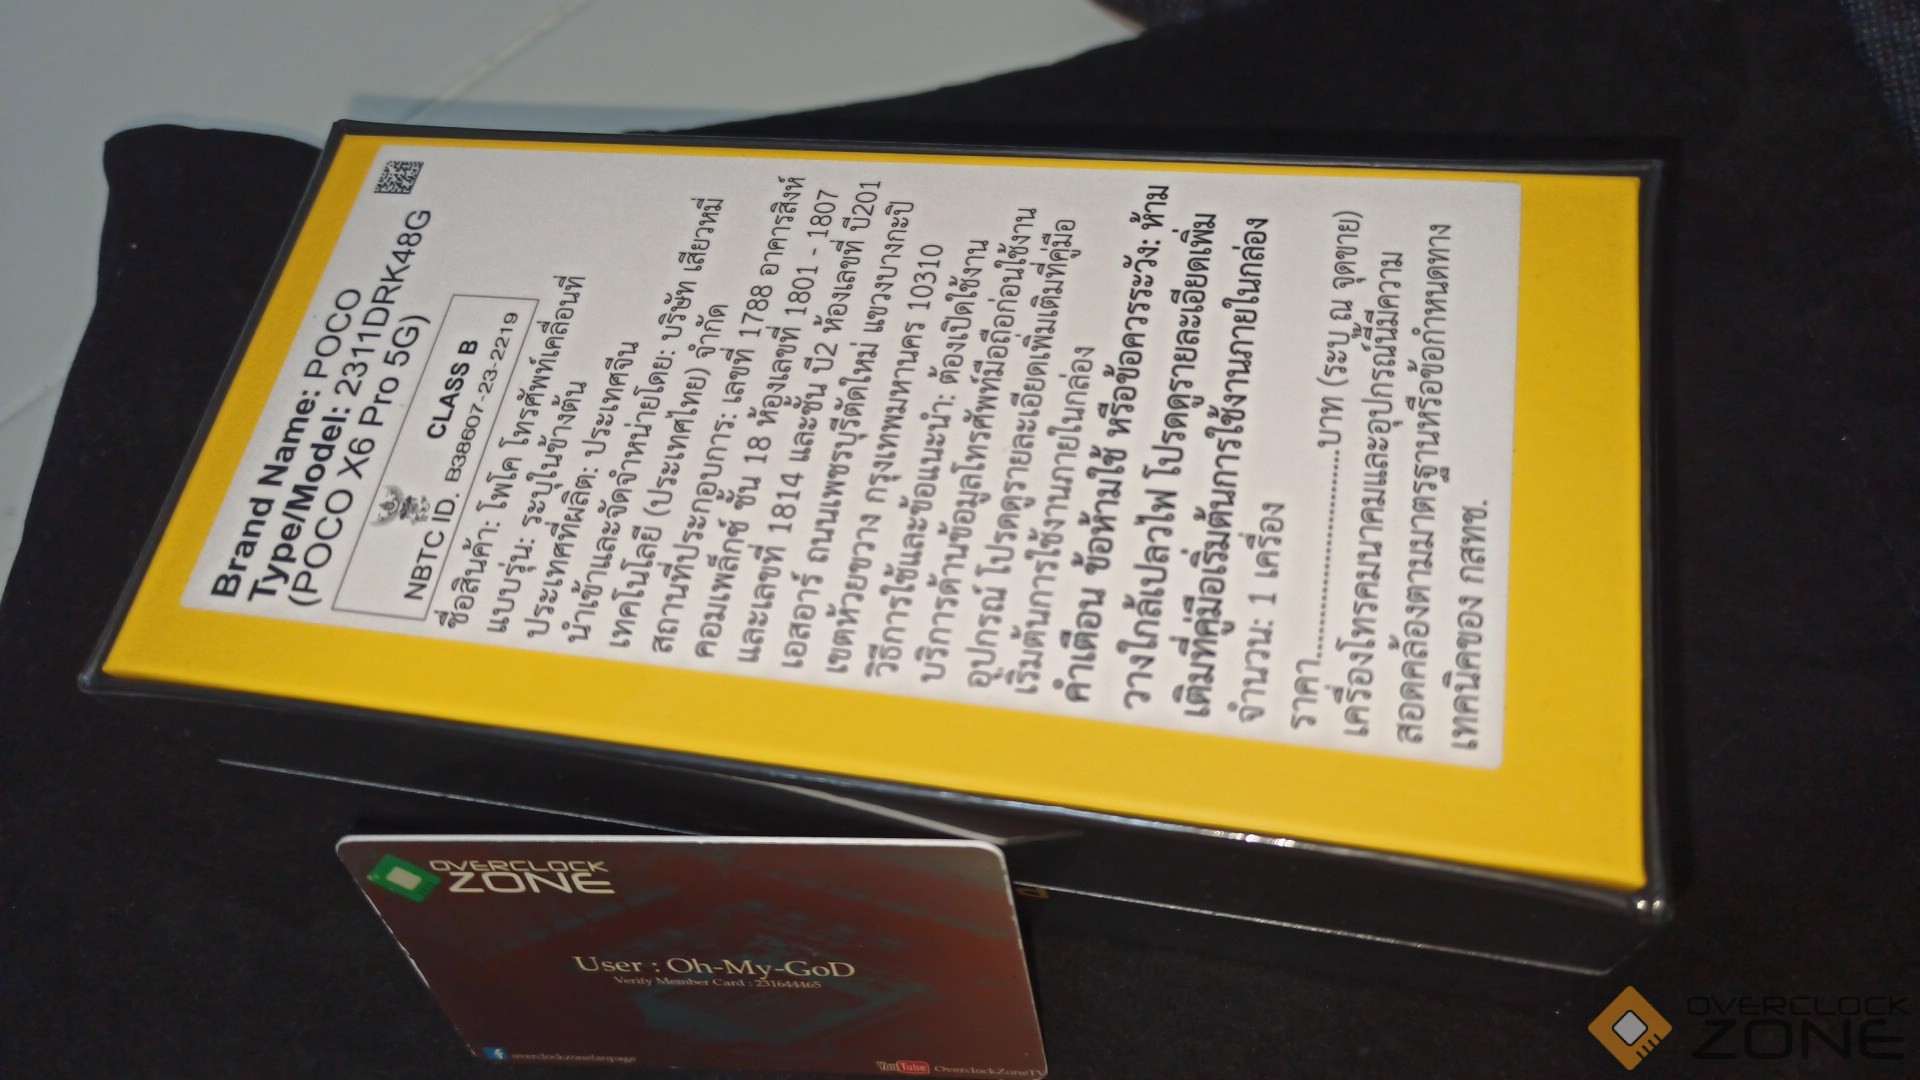 Brand Name: POCO
Type/Model: 2311DRK48G
(POCO X6 Pro 5G)
CLASS B
NBTC ID. B38607-23-2219
ชื่อสินค้า: โพโค โทรศัพท์เคลื่อนที่
แบบรุ่น: ระบุในข้างต้น
ประเทศที่ผลิต: ประเทศจีน
นำเข้าและจัดจำหน่ายโดย: บริษัท เสียวหมี่
เทคโนโลยี (ประเทศไทย) จำกัด
สถานที่ประกอบการ: เลขที่ 1788 อาคารสิงห์
คอมเพล็กซ์ ชั้น 18 ห้องเลขที่ 1801 - 1807
และเลขที่ 1814 และชั้น ปี2 ห้องเลขที่ ปี201
เอสอาร์ ถนนเพชรบุรีตัดใหม่ แขวงบางกะปิ
เขตห้วยขวาง กรุงเทพมหานคร 10310
วิธีการใช้และข้อแนะนำ: ต้องเปิดใช้งาน
บริการด้านข้อมูลโทรศัพท์มือถือก่อนใช้งาน
อุปกรณ์ โปรดดูรายละเอียดเพิ่มเติมที่คู่มือ
เริ่มต้นการใช้งานภายในกล่อง
คำเตือน ข้อห้ามใช้ หรือข้อควรระวัง: ห้าม
วางใกล้เปลวไฟ โปรดดูรายละเอียดเพิ่ม
เติมที่คู่มือเริ่มต้นการใช้งานภายในกล่อง
จำนวน: 1 เครื่อง
ราคา....................บาท (ระบุ ณ จุดขาย)
เครื่องโทรคมนาคมและอุปกรณ์นี้มีความ
สอดคล้องตามมาตรฐานหรือข้อกำหนดทาง
เทคนิคของ กสทช.
OVERCLOCK
ZONE
User : Oh-My-GoD
Verify Member Card : 231644465
overclockzonefanpage
YouTube OverclockZoneTV
OVERCLOCK
ZONE